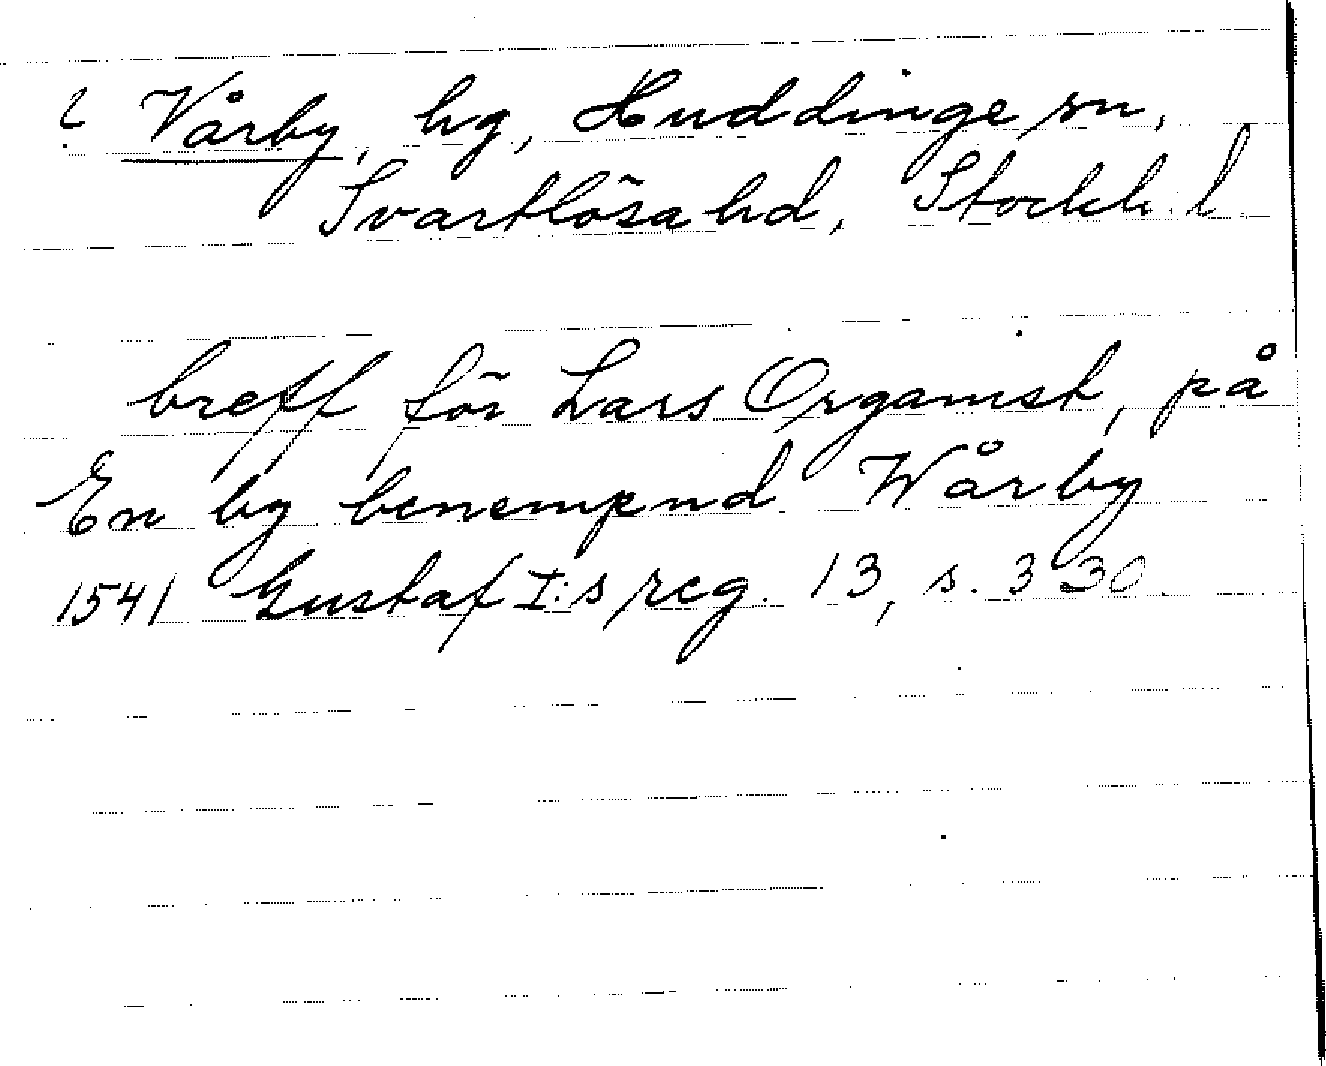 ? Vårby, hg, Huddinge sn,
Svartlösa hd, Stockh. l
breff för Lars Organist, på
En by benempnd Wårby
1541 Gustaf I:s reg. 13, s. 330.